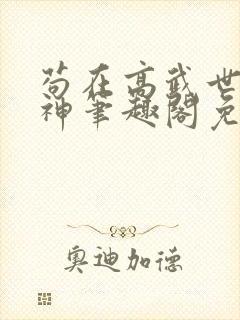 苟在高武世
神笔趣阁免
奥迪加德